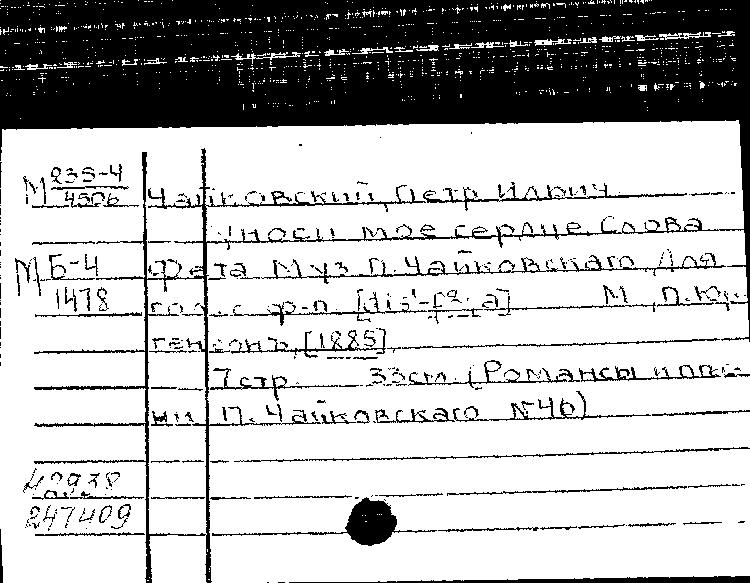 М 235-4
4506
Чайковский, Петр Ильич
Уноси мое сердце. Слова
М Б-4
1478
Фета Муз. П. Чайковскаго, Для
гол. с ф-п. [dis'-f²; a] М., П. Юр-
генсонъ, [1885].
7 стр. 33 см. (Романсы и пѣс-
ни П. Чайковскаго №46)
247409